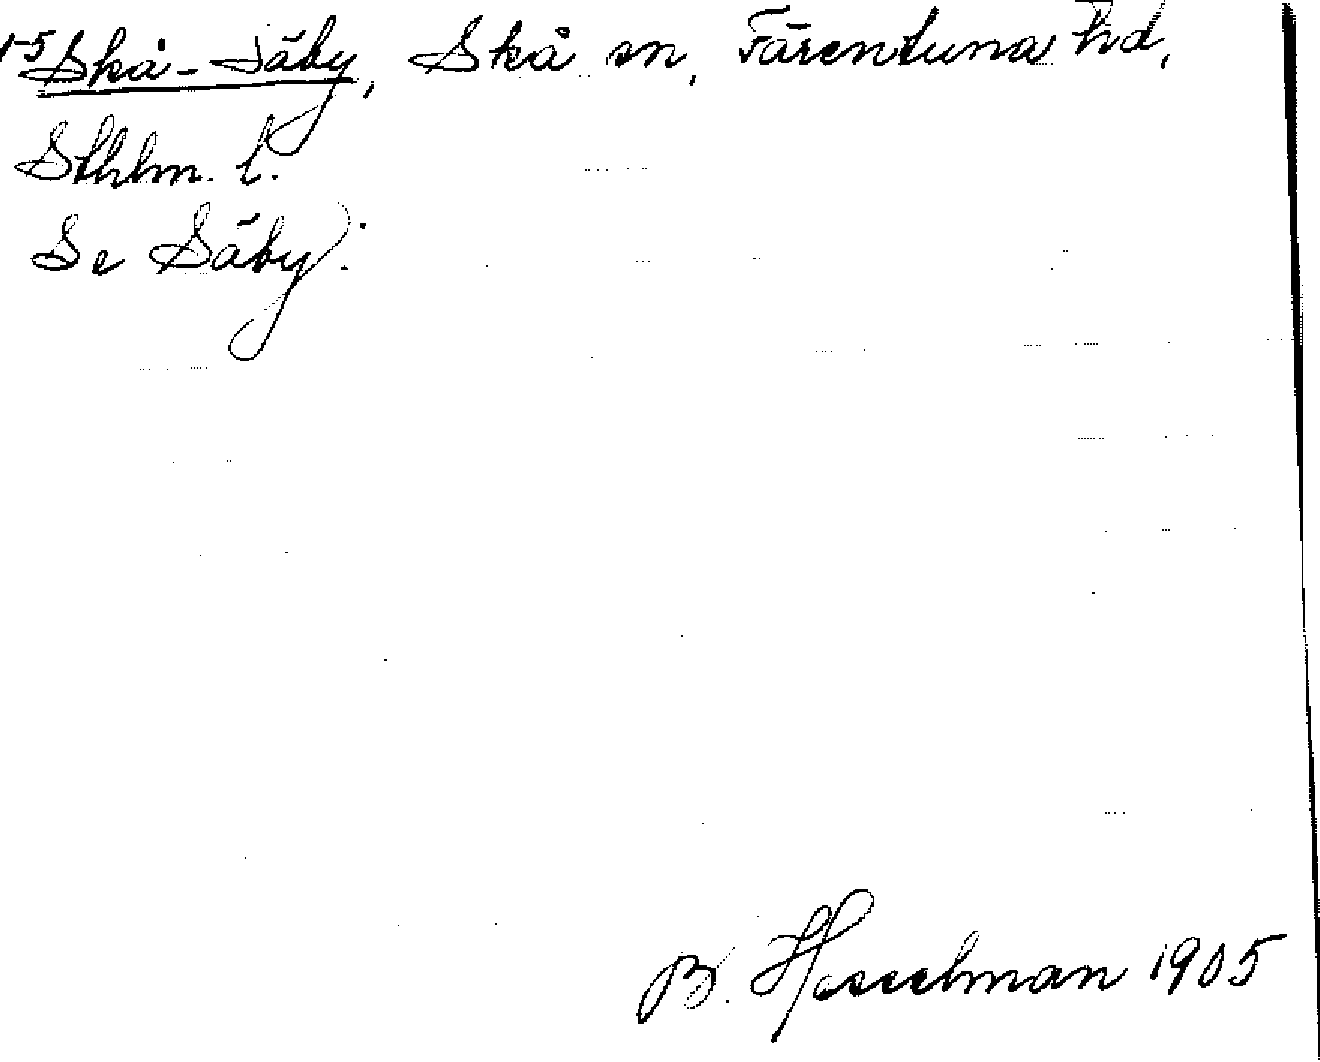 1-5 Skå-Säby, Skå sn, Färentuna hd,
Sthlm. l.
Se Säby.
B. Hesselman 1905